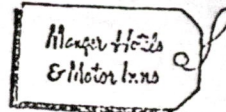 Manger Hotels
& Motor Inns